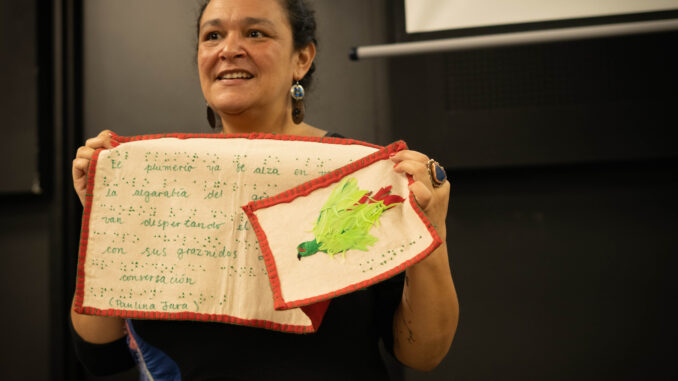 El plumerío ya se alza en
la algarabía del
van despertando el
con sus graznidos
conversación
(Paulina Jara)